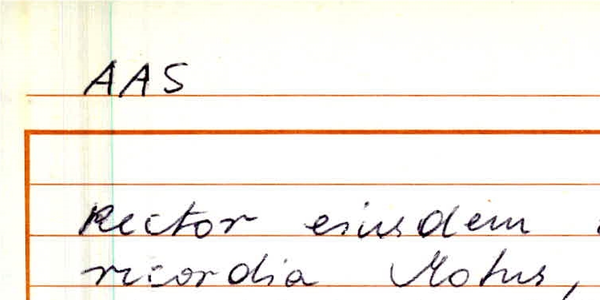 AAS
Rector eiusdem
ricordia Motus,